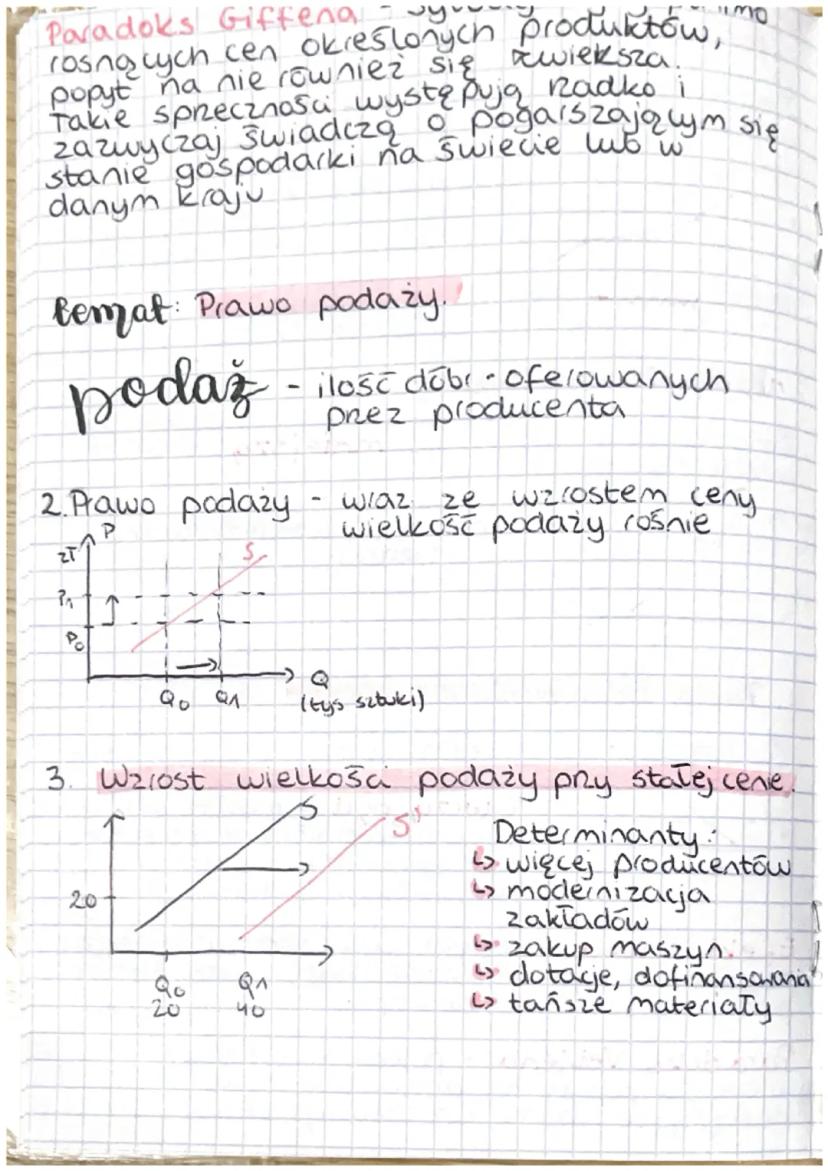 Paradoks Giffena -
rosnących cen określonych produktów,
popyt na nie również się zwiększa.
Takie sprzeczności występują rzadko i
zazwyczaj świadczą o pogarszającym się
stanie gospodarki na świecie lub w
danym kraju
temat: Prawo podaży.
podaż - ilość dóbr oferowanych
przez producenta
2. Prawo podaży - wraz ze wzrostem ceny
wielkość podaży rośnie
zł P
S
P1
P0
Q0 Q1
Q
(tys sztuki)
3. Wzrost wielkości podaży przy stałej cenie.
S
S'
20
Q0 Q1
20 40
Determinanty:
↳ więcej producentów
↳ modernizacja
zakładów
↳ zakup maszyn.
↳ dotacje, dofinansowania
↳ tańsze materiały